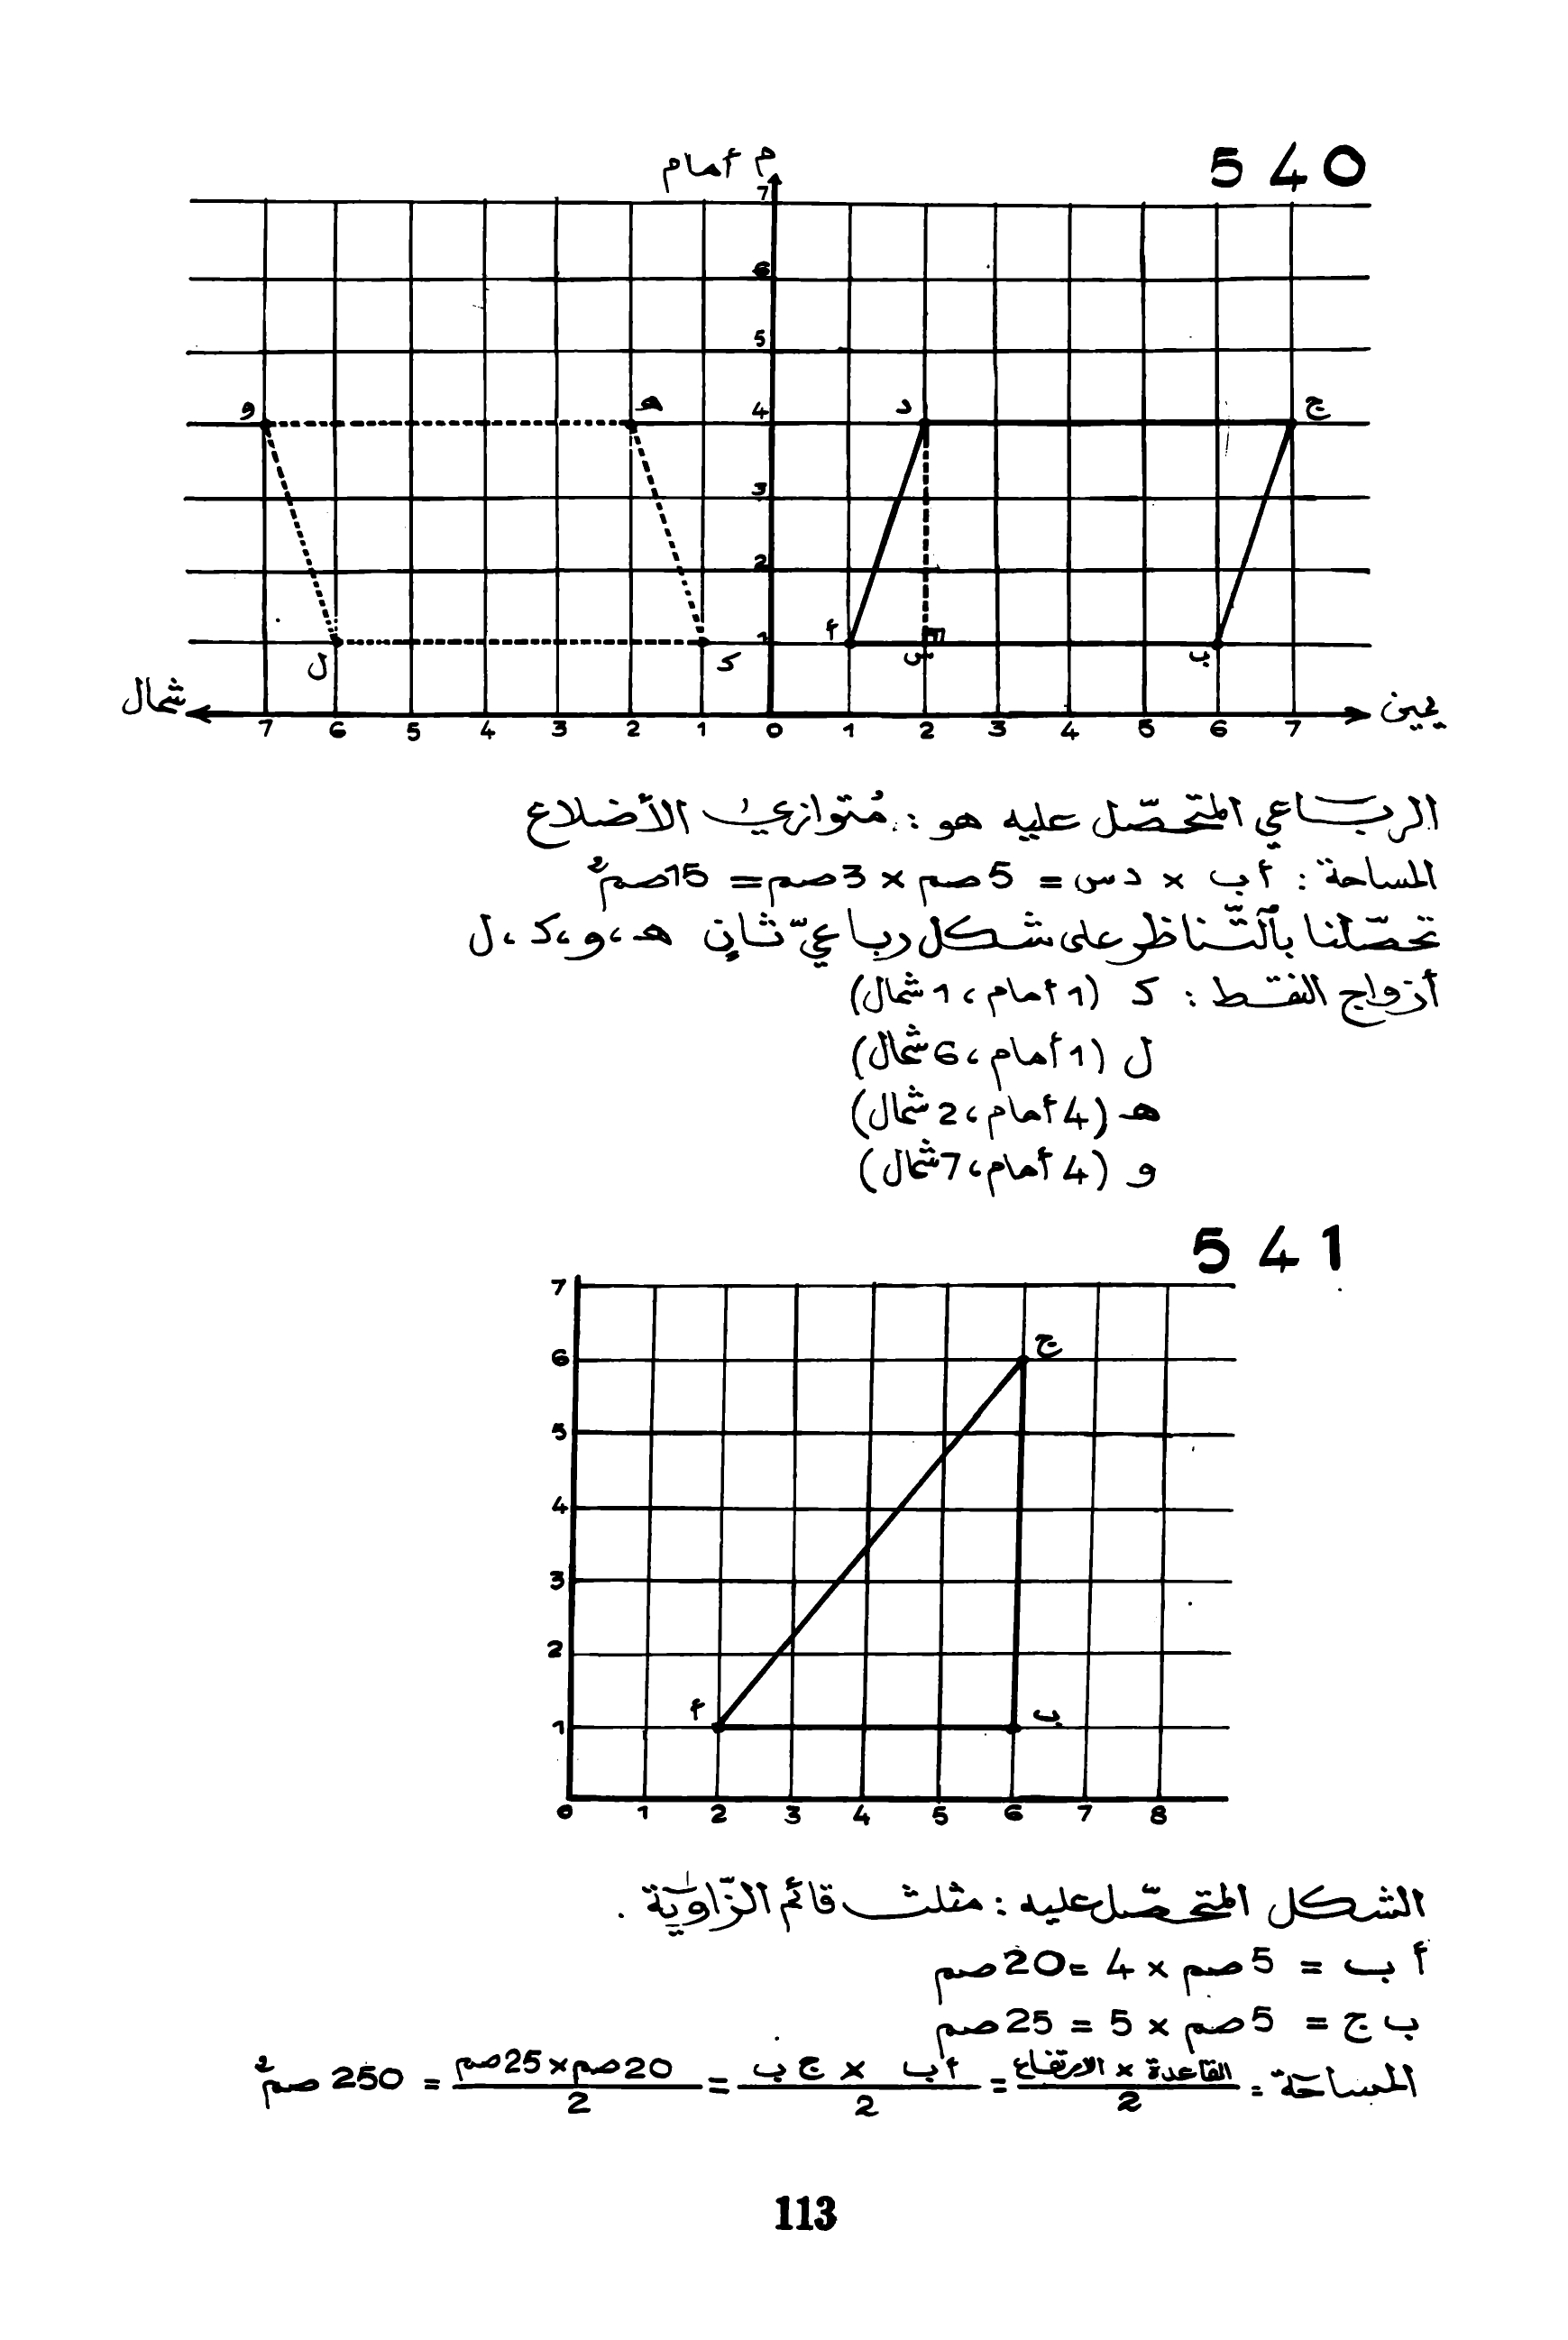 540
م أمام
7
6
5
و ه 4 د ج
3
2
1 أ س ب
ل ك
شمال 7 6 5 4 3 2 1 0 1 2 3 4 5 6 7 يمين
الرباعي المتحصّل عليه هو : مُتوازي الأضلاع
المساحة : أب × دس = 5صم × 3صم = 15صم²
تحصّلنا بٱلتّناظر على شكل رباعيّ ثانٍ هـ، و، ك، ل
أزواج النقط : ك (1 أمام، 1 شمال)
ل (1 أمام، 6 شمال)
هـ (4 أمام، 2 شمال)
و (4 أمام، 7 شمال)
541
7
6 ج
5
4
3
2
1 أ ب
0 1 2 3 4 5 6 7 8
الشكل المتحصّل عليه : مثلث قائم الزّاوية .
أ ب = 5صم × 4 = 20صم
ب ج = 5صم × 5 = 25صم
المساحة = القاعدة × الارتفاع / 2 = أب × ج ب / 2 = 20صم × 25صم / 2 = 250 صم²
113